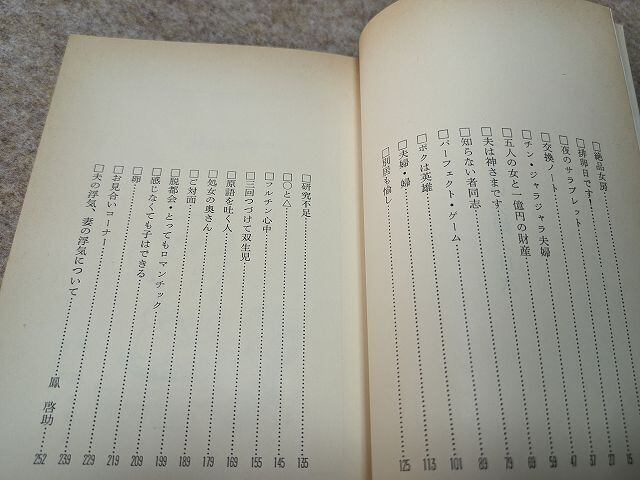 □絶品女房
□排卵日です!……15
□夜のサラブレット……21
□交換ノート……37
□チン・ジャラジャラ夫婦……47
□五人の女と一億円の財産……59
□夫は神さまです……69
□知らない者同志……79
□パーフェクト・ゲーム……89
□ボクは英雄……101
□夫婦・婦……113
□別居も愉し……125
□研究不足……135
□○と△……145
□フルチン心中……155
□三回つづけて双生児……169
□原語を吐く人……179
□処女の奥さん……189
□ご対面……199
□脱都会・とってもロマンチック……209
□感じなくても子はできる……219
□卵……229
□お見合いコーナー……239
□夫の浮気、妻の浮気について……鳳 啓助……252